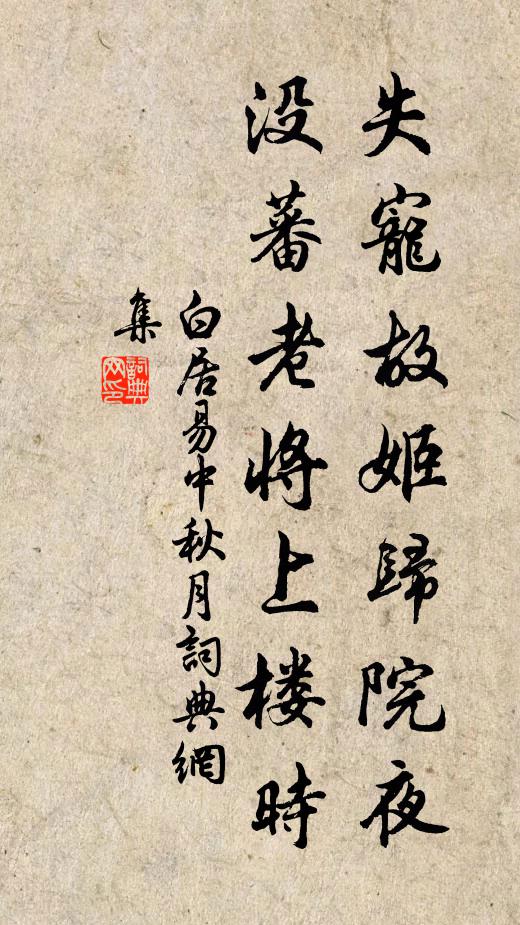 失寵故姬歸院夜
没蕃老將上楼時
白居易中秋月詞典網
集
詞典
网印